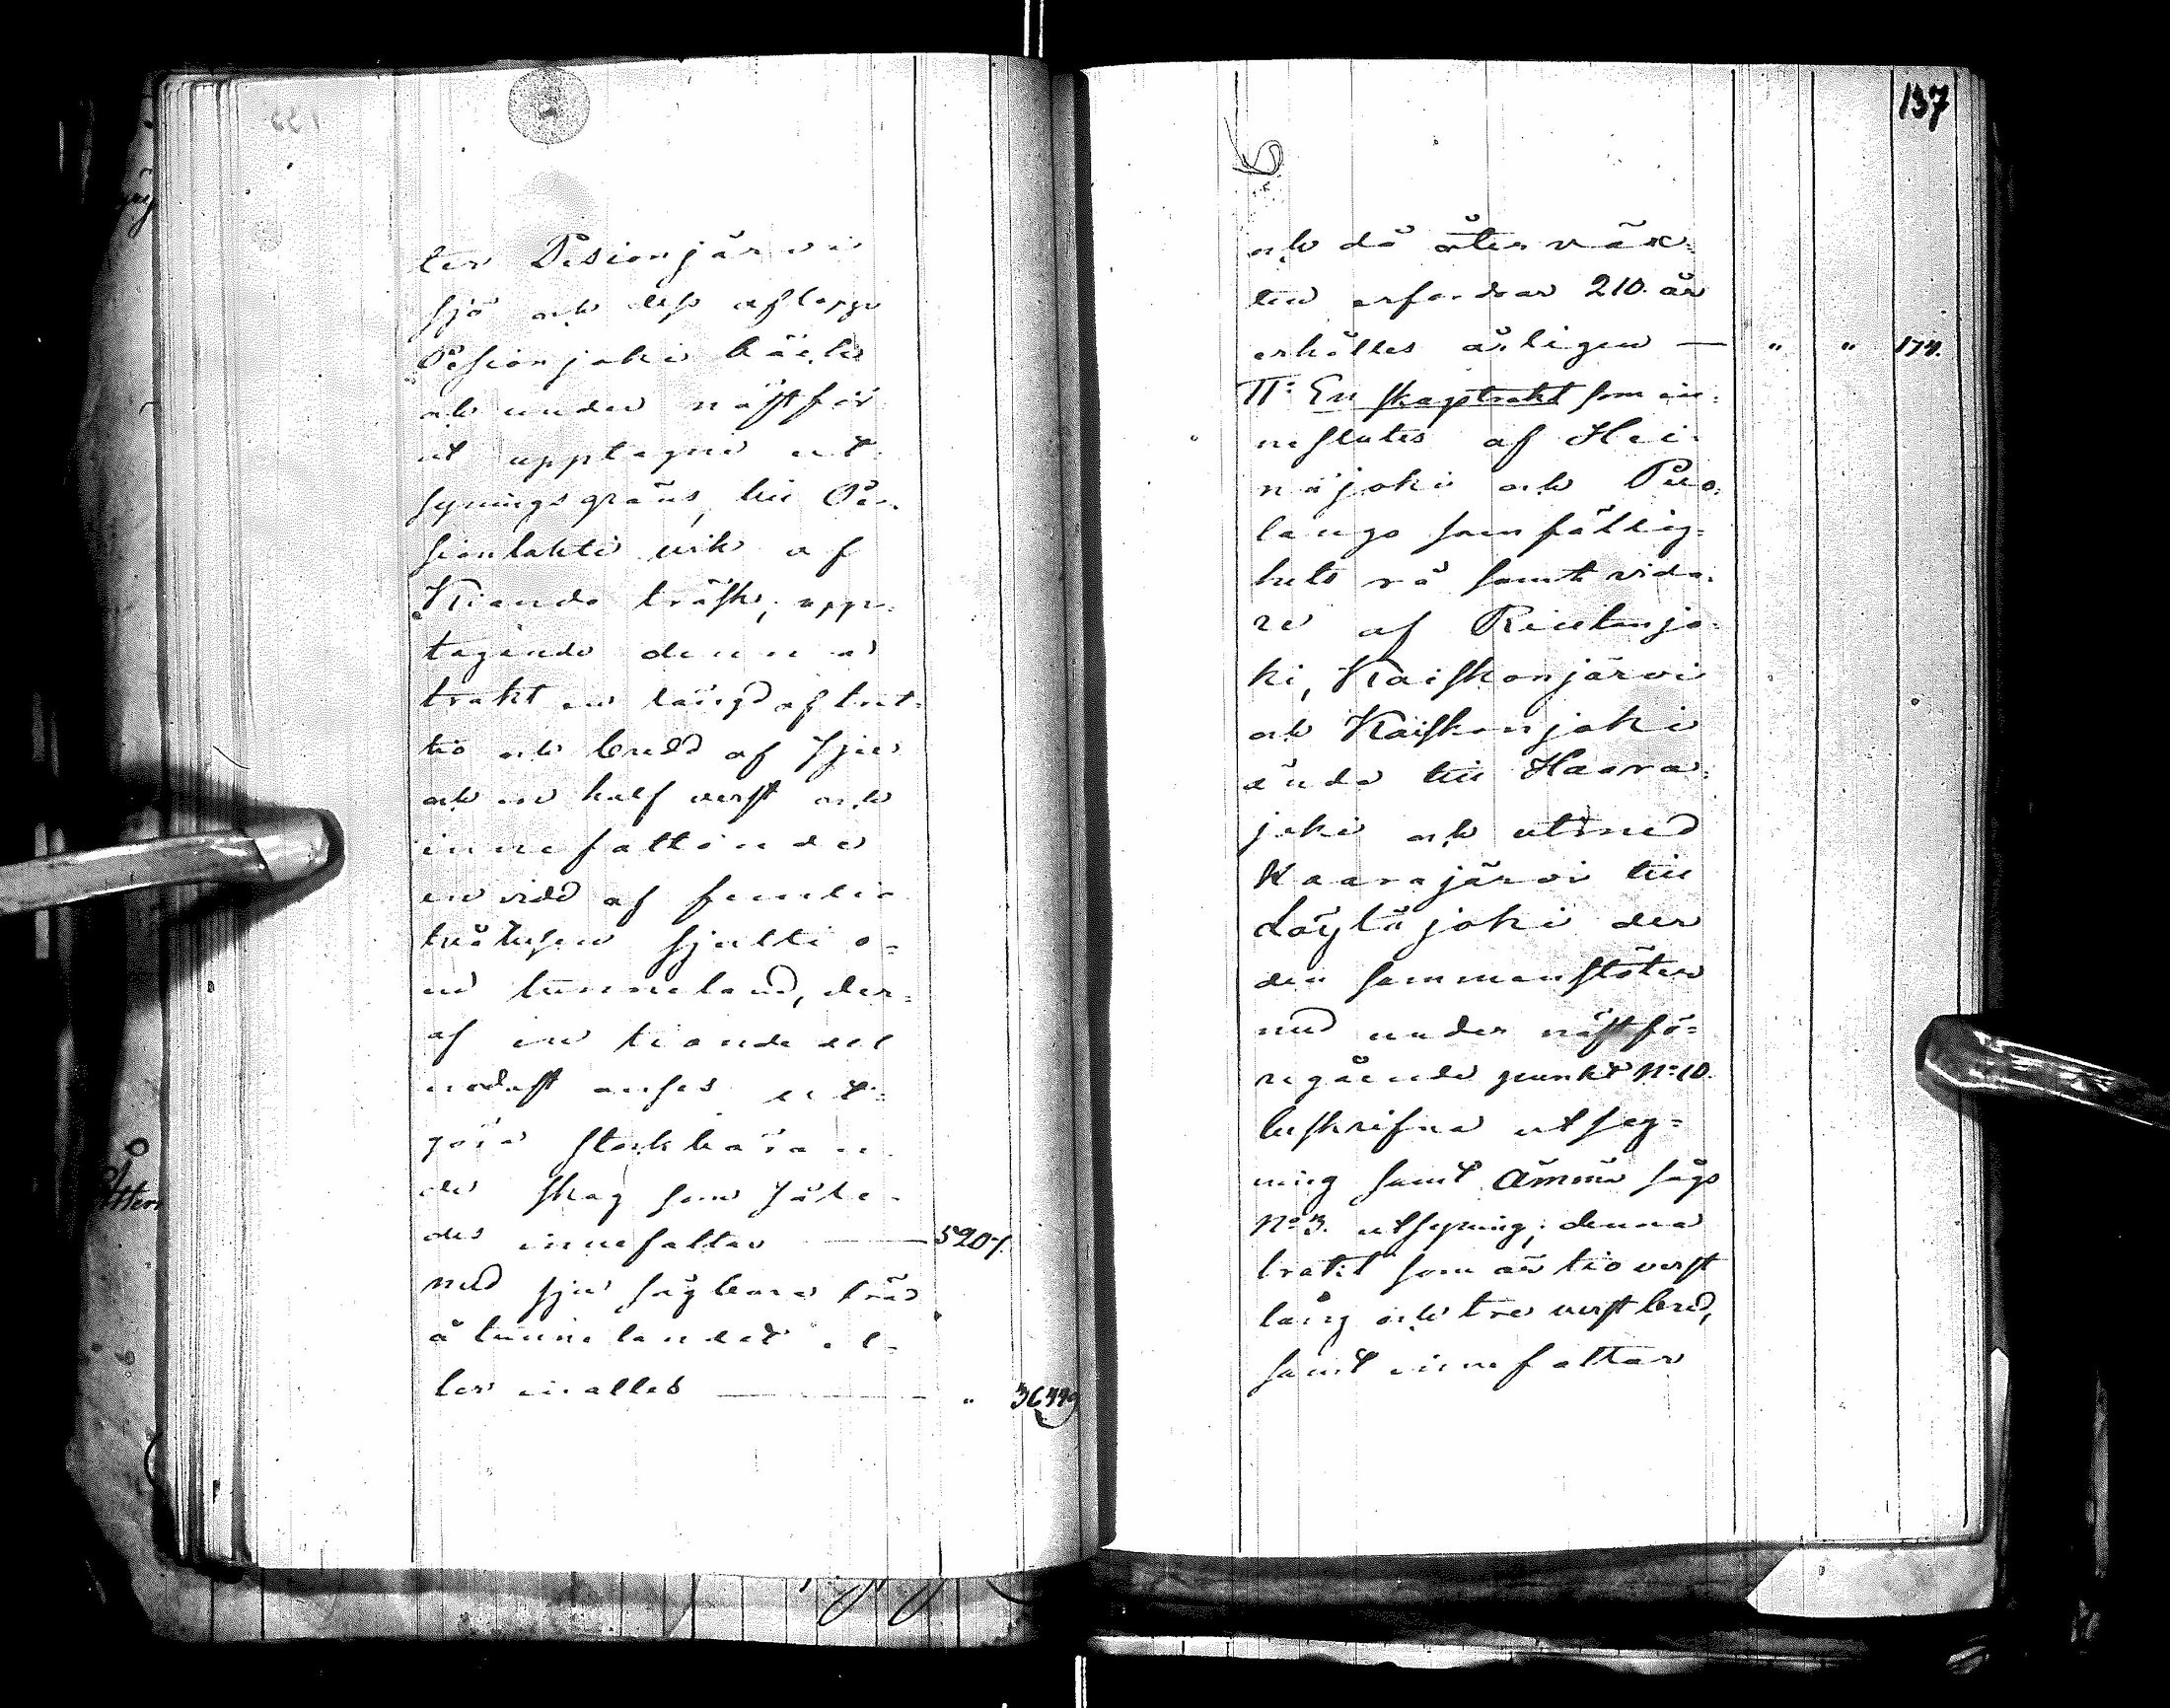 ter Pesionjärvi
sjö och dess aflopp
Pesionjoki bäck
och under nästför
ut upptagne ut-
syningsgräns, till Pe-
sionlahti vik af
Kianda träsk; upp-
tagande denna
trakt en längd af tret-
tio och bredd af sju
och en half verst och
innefattande
en vidd af femtio
tvåtusen sjutti o-
nd tunneland, der-
af en tiondedel
endast anses ut-
göra stockbäran-
de skog som såle-
des innefattar — 5207.
med sju sågbara träd
å tunnelandet el-
ler in alles — " 36449
137
och då återväx-
ten erfordrar 210 år
erhålles årligen — " " 174.
11: En skogstrakt som in-
neslutes af Hei-
näjoki och Puo-
lango samfällig-
hets rå samt vida-
re af Kiutanjo-
ki, Kaiskonjärvi
och Kaiskonjoki
ända till Haara-
joki och utmed
Kaarajärvi till
Löytäjoki der
den sammanstöter
med under nästfö-
regående punkt No 10.
beskrifna utsy-
ning samt Ämmä sågs
No 3. utsyning; denna
trakt som är tio verst
lång och tre verst bred,
samt innefattar